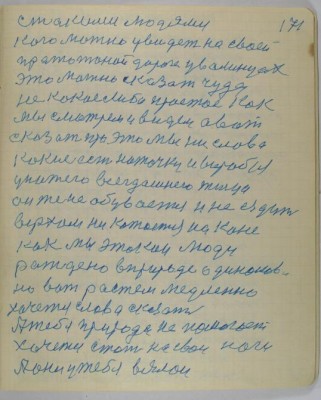 стакими людями 171
кого можно увидет на своей
протоптаной дороге у
это можно сказат чудо
не какое либо простое как
мы смотрем и видем а вот
сказат про это мы ни слова
какие ест на точку и
у него всегдашнего птица
он же не обувается и не ездит
верхом ни катается на коне
как мы этокои люди
рождено в природе одиноков-
но вот растем медленно
хочетя слова сказат
А тебя природа не помогает
хочетя стат на свои ноги
А они у тебя вялои